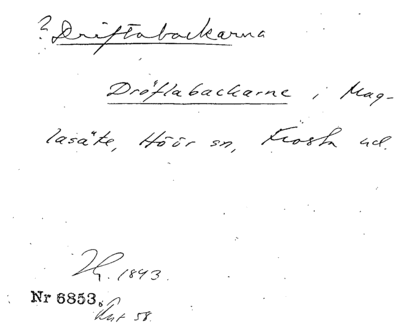 ? Driftabackarna
Dröftabackarne i Mag-
lasäte, Höör sn, Frosta hd.
1843.
Nr 6853.
58.